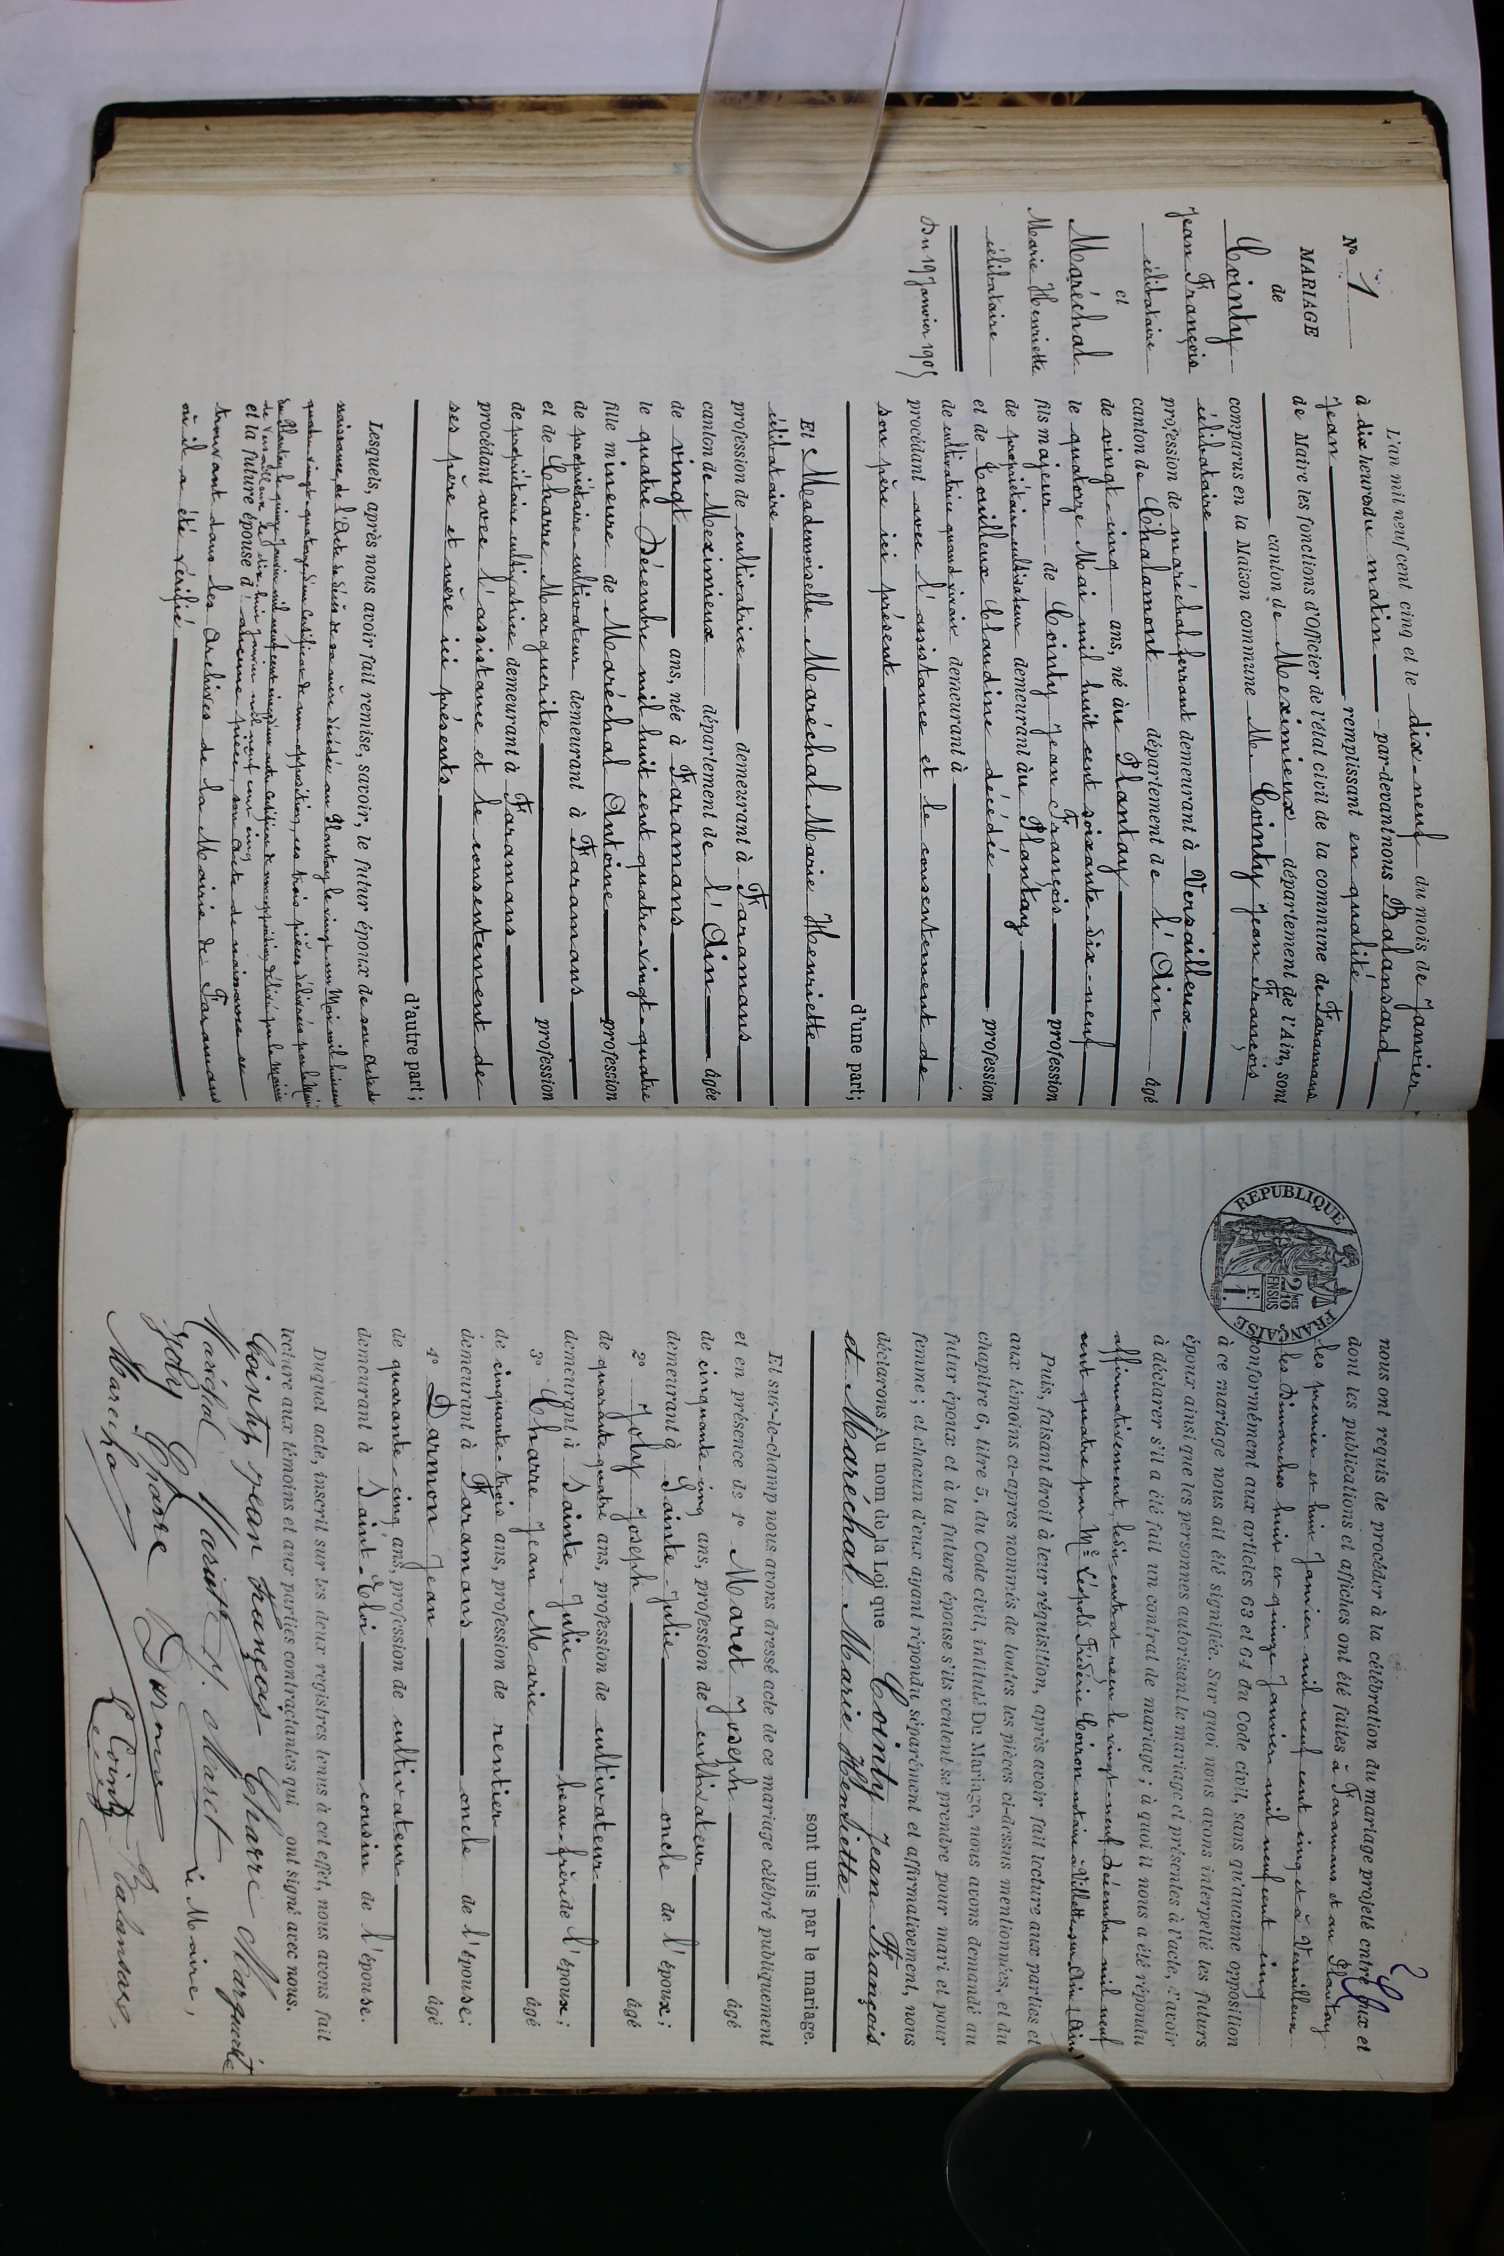 N° 1
MARIAGE
de
Cointy
Jean François
célibataire
et
Maréchal
Marie Henriette
célibataire
Du 19 Janvier 1905
L'an mil neuf cent cinq et le dix-neuf du mois de Janvier
à dix heures du matin par-devant nous Balansard
Jean remplissant en qualité
de Maire les fonctions d'Officier de l'état civil de la commune de Faramans
canton de Meximieux département de l'Ain, sont
comparus en la Maison commune M. Cointy Jean François
célibataire
profession de maréchal ferrant demeurant à Versailleux
canton de Chalamont département de l'Ain âgé
de vingt-cinq ans, né au Plantay
le quatorze Mai mil huit cent soixante-dix-neuf
fils majeur de Cointy Jean François profession
de propriétaire cultivateur demeurant au Plantay
et de Convilleux Claudine décédée profession
de cultivatrice quand vivait demeurant à
procédant avec l'assistance et le consentement de
son père ici présent
d'une part;
Et Mademoiselle Maréchal Marie Henriette
célibataire
profession de cultivatrice demeurant à Faramans
canton de Meximieux département de l'Ain âgée
de vingt ans, née à Faramans
le quatre Décembre mil huit cent quatre-vingt-quatre
fille mineure de Maréchal Antoine profession
de propriétaire cultivateur demeurant à Faramans
et de Charre Marguerite profession
de propriétaire cultivatrice demeurant à Faramans
procédant avec l'assistance et le consentement de
ses père et mère ici présents
d'autre part;
Lesquels, après nous avoir fait remise, savoir, le futur époux de son acte de
naissance, de l'Acte de décès de sa mère décédée au Plantay le vingt-un Mai mil huit cent
quatre-vingt-quatorze d'un certificat de non opposition, ces trois pièces délivrées par le Maire
du Plantay le quinze Janvier mil neuf cent cinq d'un autre certificat de non opposition délivré par le Maire
de Versailleux le dix-huit Janvier mil neuf cent cinq
et la future épouse d'aucune pièce, son acte de naissance se
trouvant dans les Archives de la Mairie de Faramans
où il a été vérifié
REPUBLIQUE FRANÇAISE
nous ont requis de procéder à la célébration du mariage projeté entre eux et
dont les publications et affiches ont été faites à Faramans et au Plantay
les premier et huit Janvier mil neuf cent cinq et à Versailleux
les Dimanches huit et quinze Janvier mil neuf cent cinq
conformément aux articles 63 et 64 du Code civil, sans qu'aucune opposition
à ce mariage nous ait été signifiée. Sur quoi nous avons interpellé les futurs
époux ainsi que les personnes autorisant le mariage et présentes à l'acte, d'avoir
à déclarer s'il a été fait un contrat de mariage; à quoi il nous a été répondu
affirmativement, ledit contrat reçu le vingt-neuf Décembre mil neuf
cent quatre par Me Frédéric Coiron notaire à Villette sur Ain (Ain)
Puis, faisant droit à leur réquisition, après avoir fait lecture aux parties et
aux témoins ci-après nommés de toutes les pièces ci-dessus mentionnées, et du
chapitre 6, titre 5, du Code civil, intitulé Du Mariage, nous avons demandé au
futur époux et à la future épouse s'ils veulent se prendre pour mari et pour
femme; et chacun d'eux ayant répondu séparément et affirmativement, nous
déclarons Au nom de la Loi que Cointy Jean François
et Maréchal Marie Henriette
sont unis par le mariage.
Et sur-le-champ nous avons dressé acte de ce mariage célébré publiquement
et en présence de 1° Maret Joseph âgé
de cinquante-cinq ans, profession de cultivateur
demeurant à Sainte-Julie oncle de l'époux;
2° Joly Joseph âgé
de quarante-quatre ans, profession de cultivateur
demeurant à Sainte-Julie beau-frère de l'époux;
3° Charre Jean Marie âgé
de cinquante-trois ans, profession de rentier
demeurant à Faramans oncle de l'épouse;
4° Darmon Jean âgé
de quarante-cinq ans, profession de cultivateur
demeurant à Saint-Eloi cousin de l'épouse.
Duquel acte, inscrit sur les deux registres tenus à cet effet, nous avons fait
lecture aux témoins et aux parties contractantes qui ont signé avec nous.
Cointy Jean François Charre Marguerite
Maréchal Mariette J. Maret Le Maire,
Joly Charre Darmon Balansard
Marechal Cointy